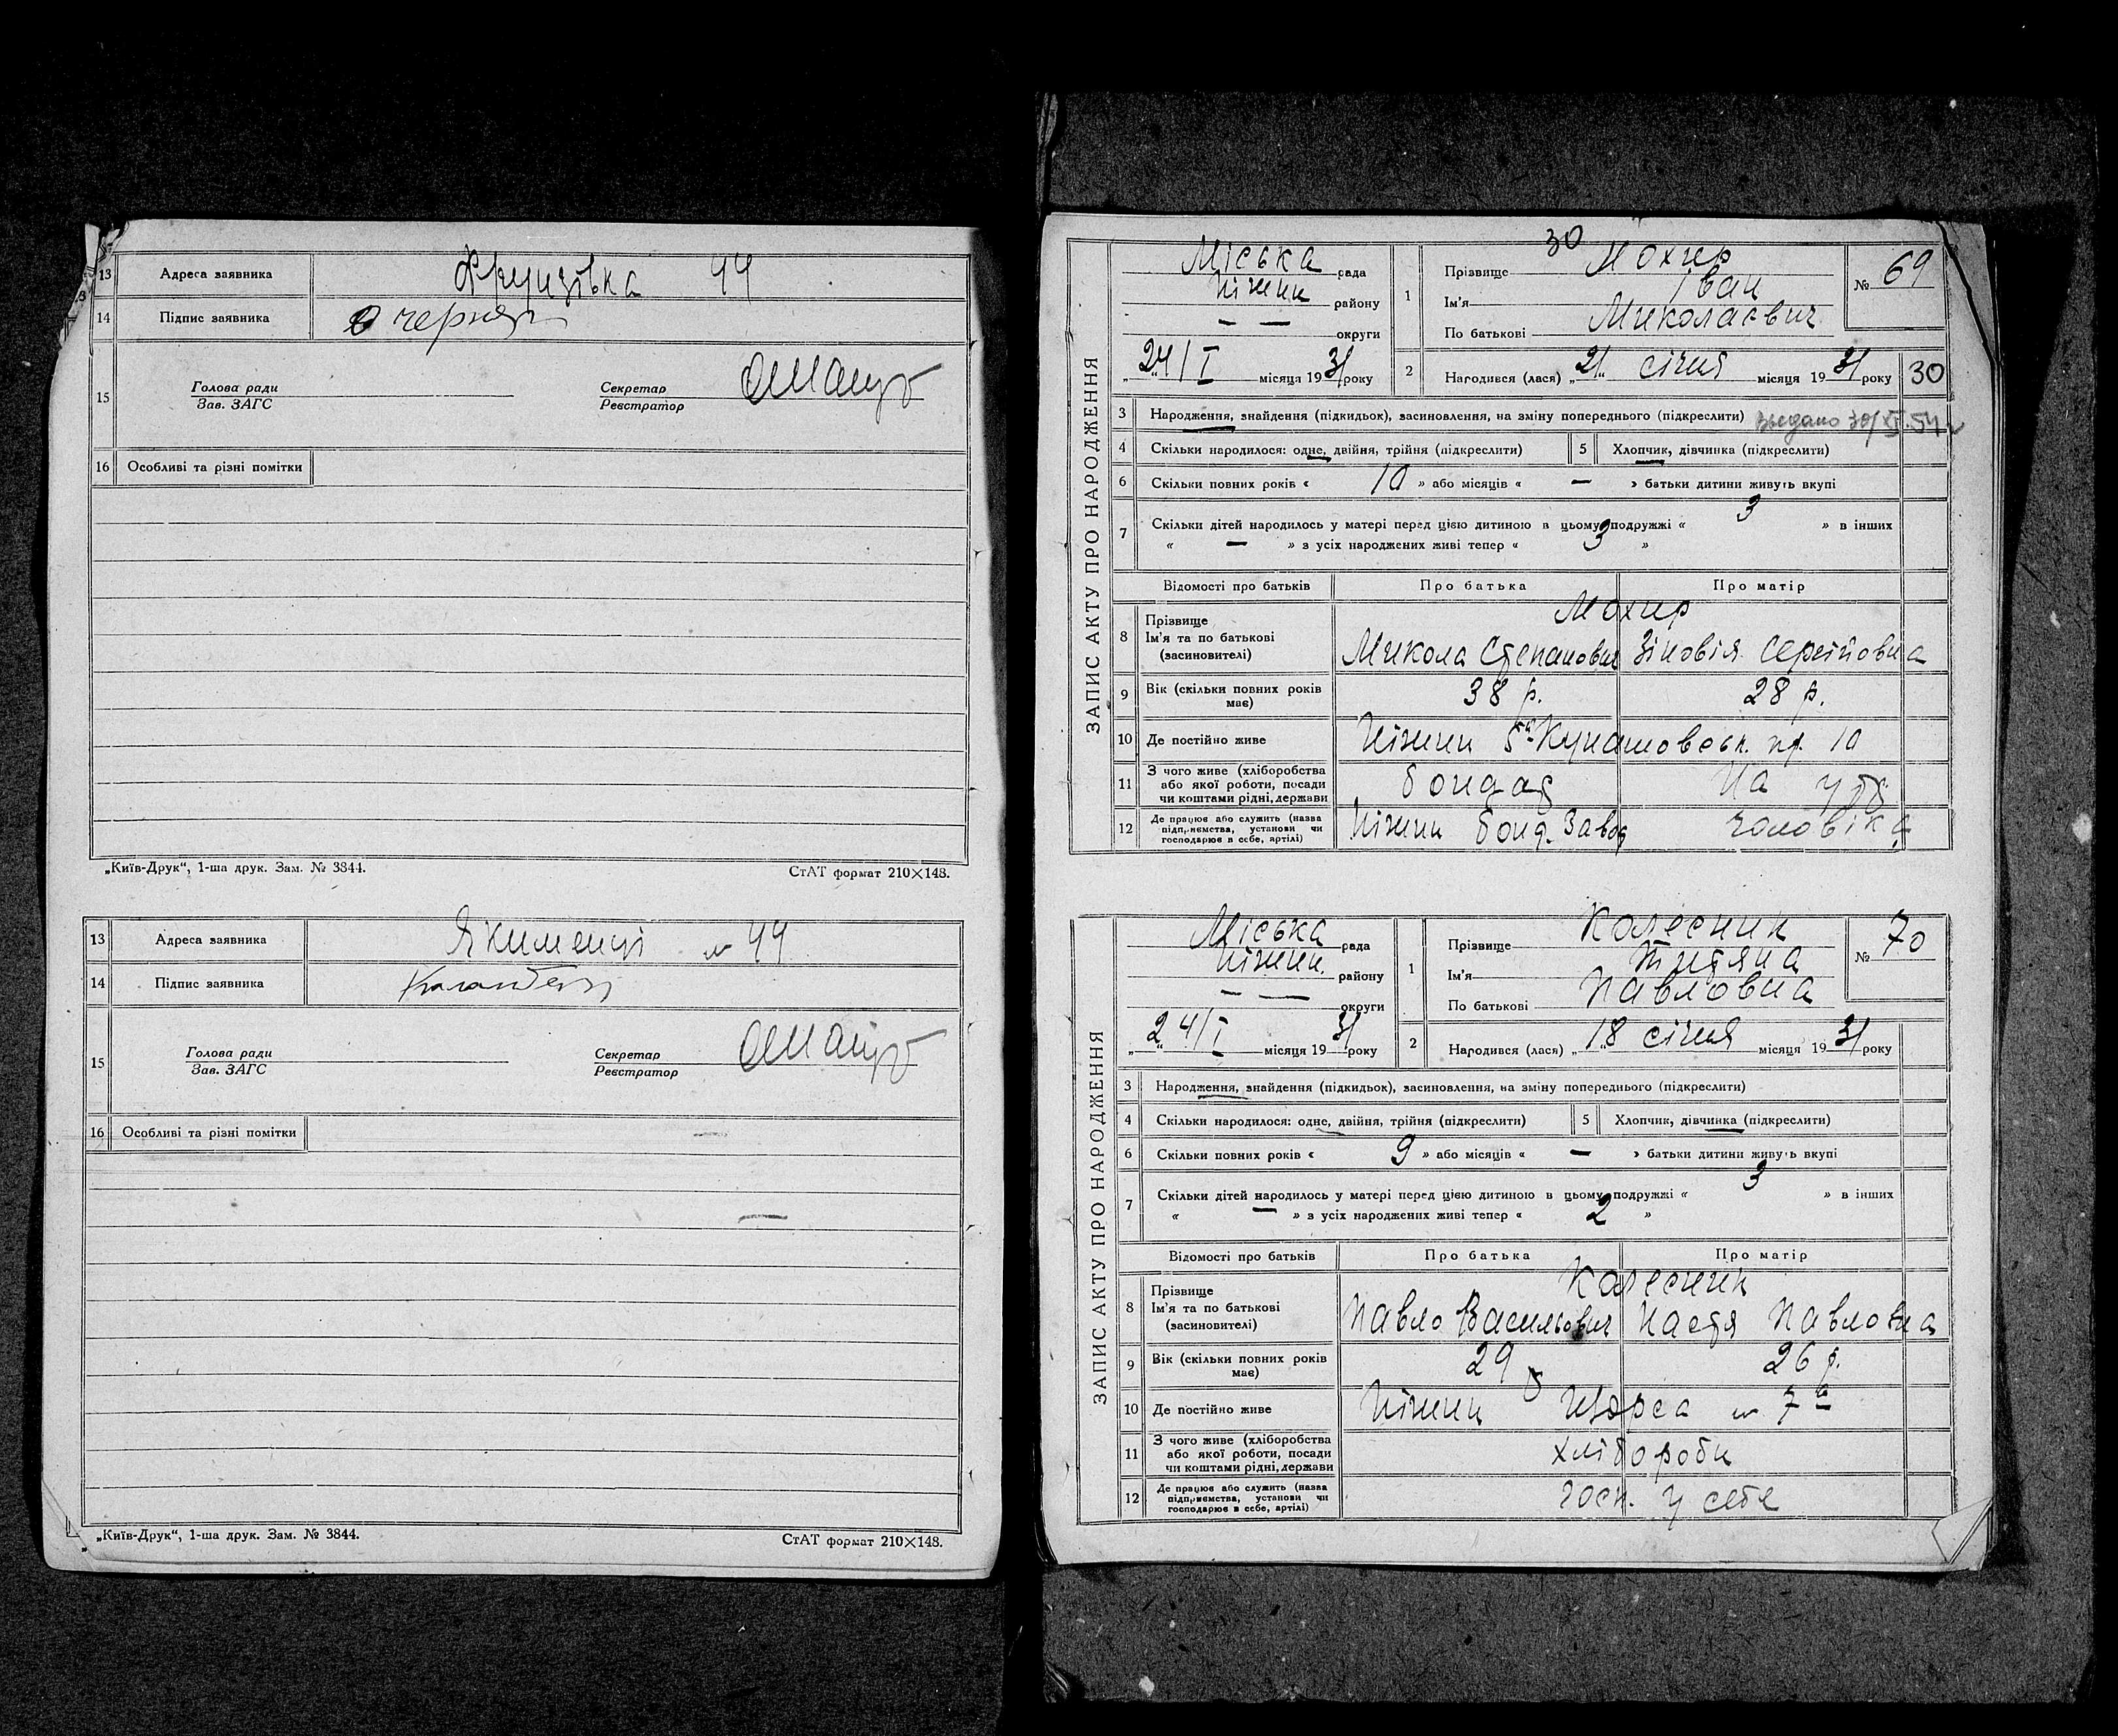 13 Адреса заявника Фрунзівка 44
14 Підпис заявника
15 Голова ради Секретар
Зав. ЗАГС Реєстратор
16 Особливі та різні помітки
„Київ-Друк“, 1-ша друк. Зам. № 3844. СтАТ формат 210×148.
13 Адреса заявника Якименці № 44
14 Підпис заявника
15 Голова ради Секретар
Зав. ЗАГС Реєстратор
16 Особливі та різні помітки
„Київ-Друк“, 1-ша друк. Зам. № 3844. СтАТ формат 210×148.
30
ЗАПИС АКТУ ПРО НАРОДЖЕННЯ
Міська рада
Ніжин району
— — округи
„24/I місяця 1931 року
1 Прізвище Мохир
Ім'я Іван
По батькові Миколаєвич
№ 69
2 Народився (лася) „21“ січня місяця 1931 року 30
3 Народження, знайдення (підкидьок), засиновлення, на зміну попереднього (підкреслити) Выдано 30/XI.54
4 Скільки народилося: одне, двійня, трійня (підкреслити) 5 Хлопчик, дівчинка (підкреслити)
6 Скільки повних років « 10 » або місяців « — » батьки дитини живуть вкупі
7 Скільки дітей народилось у матері перед цією дитиною в цьому подружжі « 3 » в інших
« — » з усіх народжених живі тепер « 3 »
Відомості про батьків Про батька Про матір
8 Прізвище Мохир
Ім'я та по батькові (засиновителі) Микола Степанович Зіновія Сергійовна
9 Вік (скільки повних років має) 38 р. 28 р.
10 Де постійно живе Ніжин Кунашовськ. 10
11 З чого живе (хліборобства або якої роботи, посади чи коштами рідні, держави бондар На утр
12 Де працює або служить (назва підприємства, установи чи господарює в себе, артілі) Ніжин бонд. Завод чоловіка
ЗАПИС АКТУ ПРО НАРОДЖЕННЯ
Міська рада
Ніжин. району
— — округи
„24/I місяця 1931 року
1 Прізвище Колесник
Ім'я Титяна
По батькові Павловна
№ 70
2 Народився (лася) „18 січня місяця 1931 року
3 Народження, знайдення (підкидьок), засиновлення, на зміну попереднього (підкреслити)
4 Скільки народилося: одне, двійня, трійня (підкреслити) 5 Хлопчик, дівчинка (підкреслити)
6 Скільки повних років « 9 » або місяців « — » батьки дитини живуть вкупі
7 Скільки дітей народилось у матері перед цією дитиною в цьому подружжі « 3 » в інших
« — » з усіх народжених живі тепер « 2 »
Відомості про батьків Про батька Про матір
8 Прізвище Колесник
Ім'я та по батькові (засиновителі) Павло Васильович Настя Павловна
9 Вік (скільки повних років має) 29 26 р.
10 Де постійно живе Ніжин Щорса № 7
11 З чого живе (хліборобства або якої роботи, посади чи коштами рідні, держави хлібороби
12 Де працює або служить (назва підприємства, установи чи господарює в себе, артілі) госп. у себе